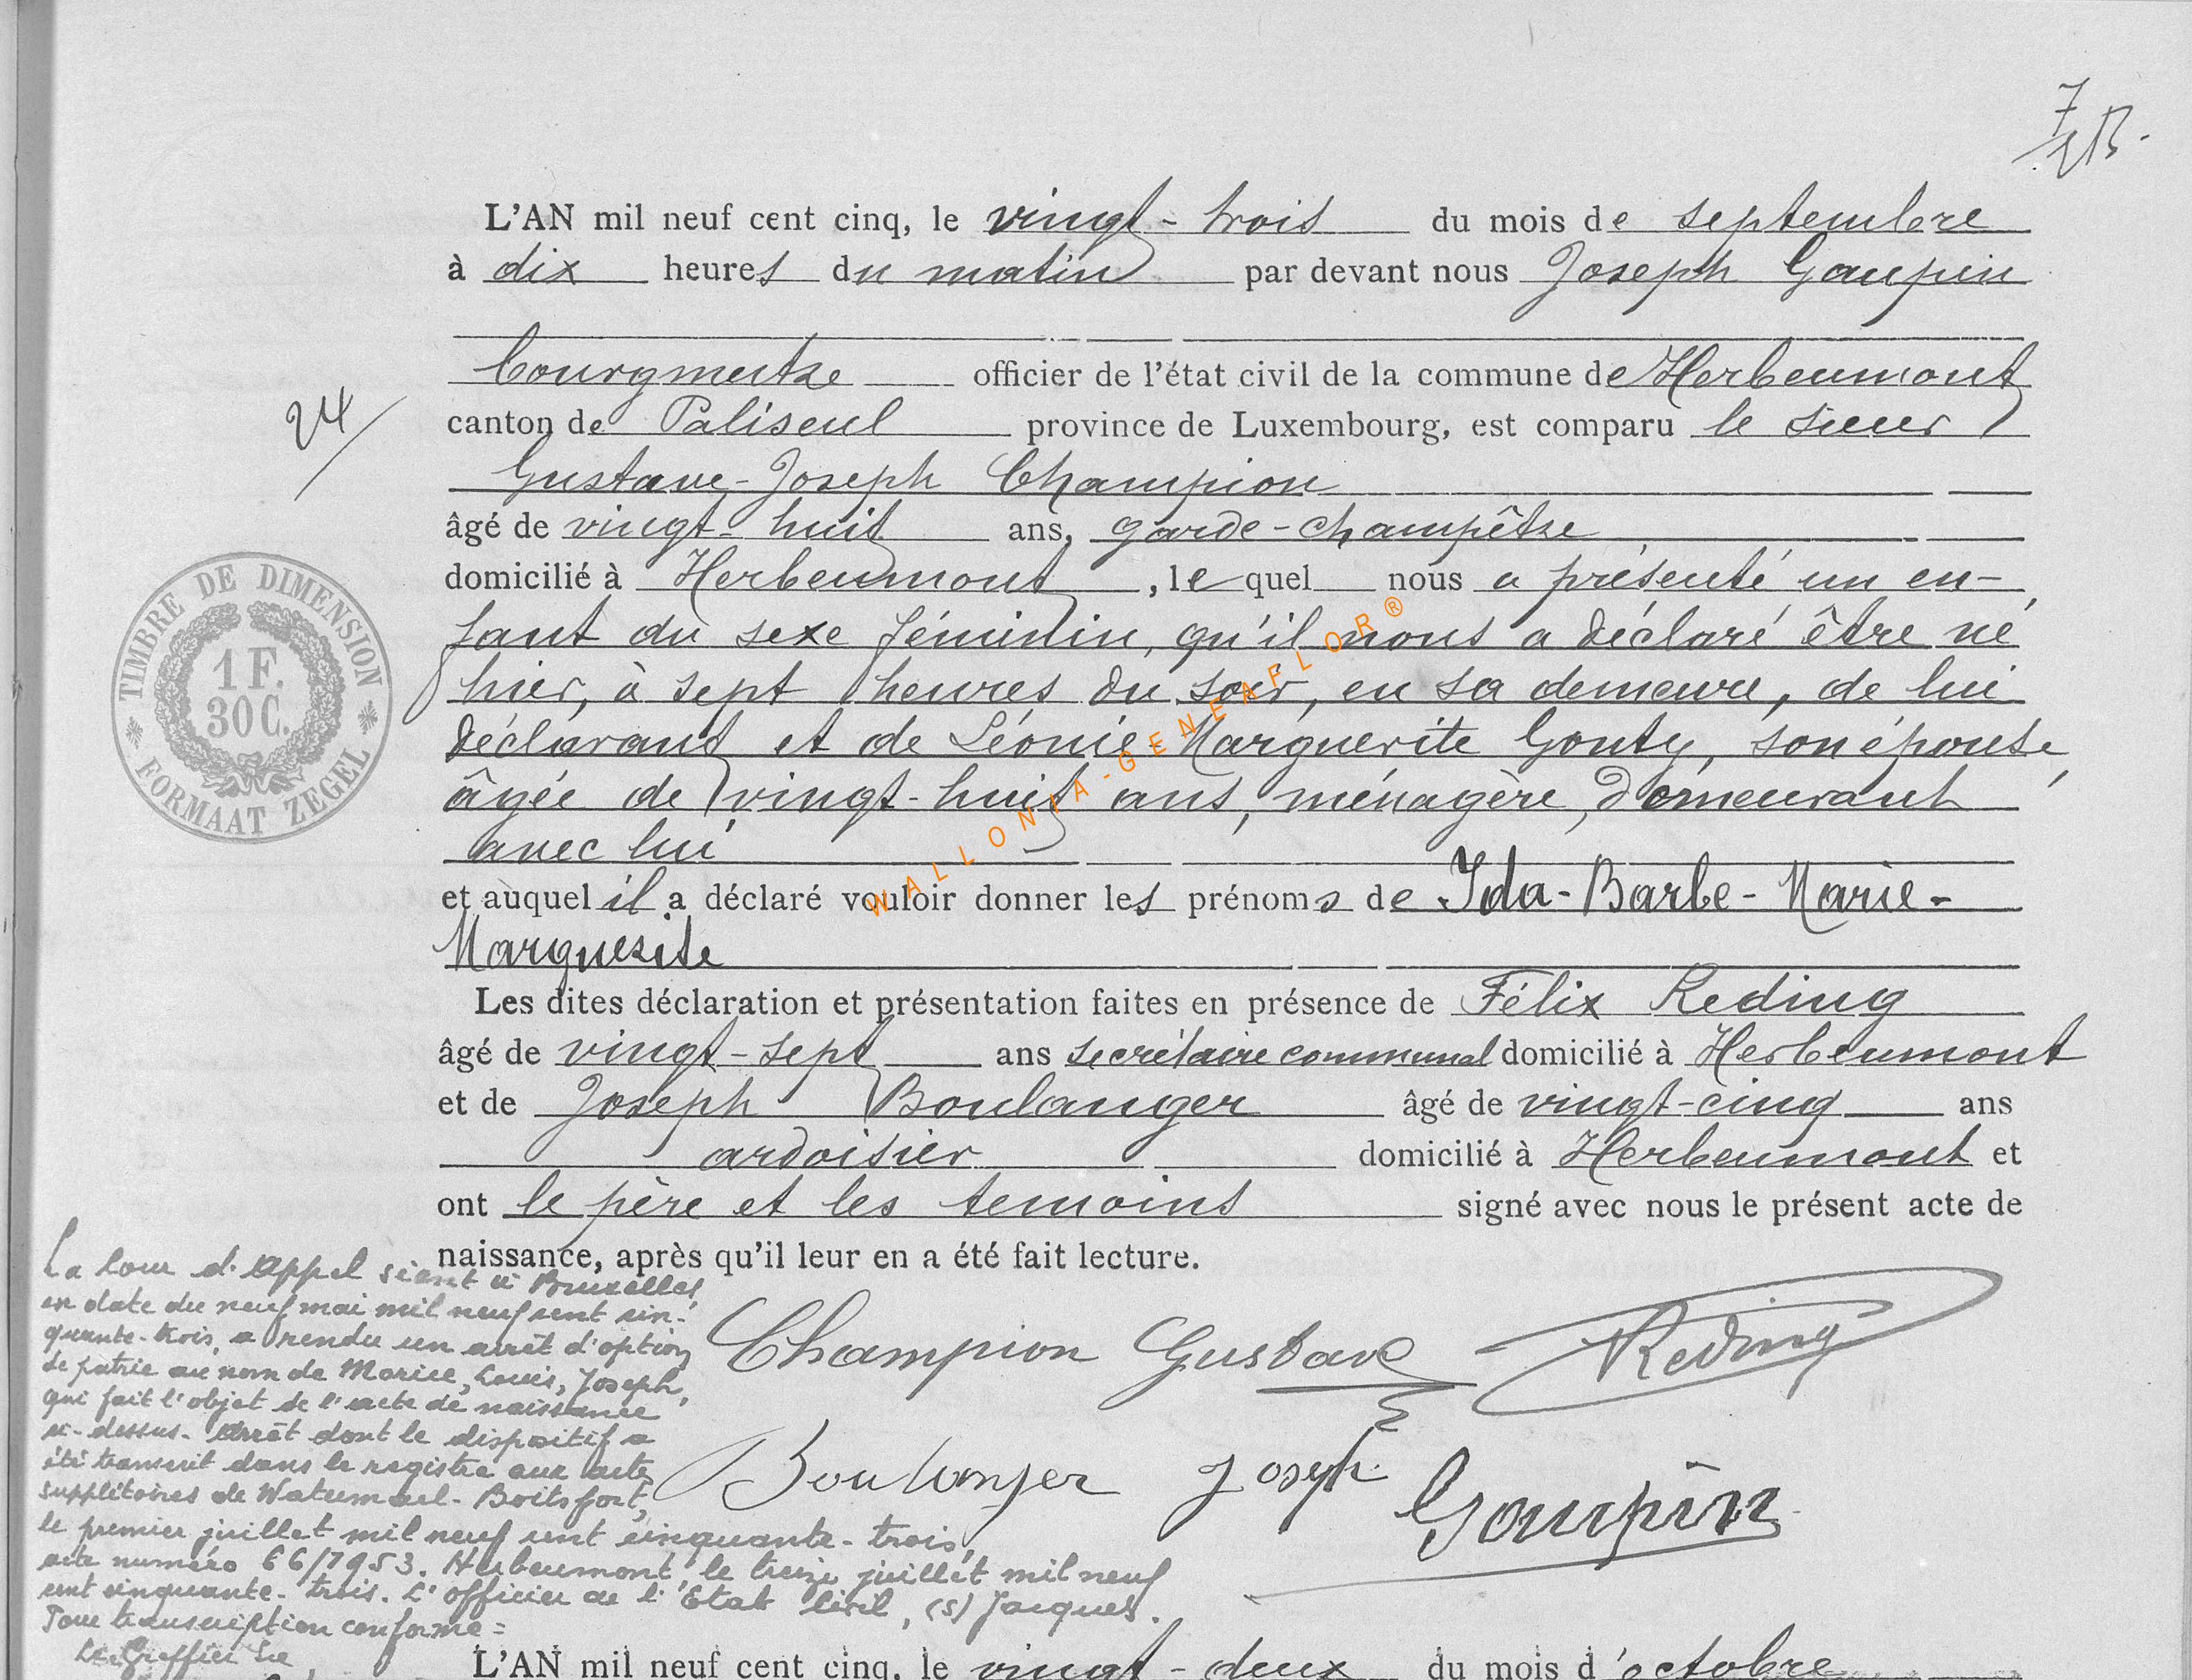 7
L'AN mil neuf cent cinq, le vingt-trois du mois de septembre
à dix heures du matin par devant nous Joseph Goupin
bourgmestre officier de l'état civil de la commune de Herbeumont
24
canton de Paliseul province de Luxembourg, est comparu le sieur
Gustave-Joseph Champion
âgé de vingt-huit ans, garde-champêtre
domicilié à Herbeumont, lequel nous a présenté un en-
fant du sexe féminin, qu'il nous a déclaré être né
hier, à sept heures du soir, en sa demeure, de lui
déclarant et de Léonie-Marguerite Gouty, son épouse,
âgée de vingt-huit ans, ménagère, demeurant
avec lui
et auquel il a déclaré vouloir donner les prénoms de Ida-Barbe-Marie-
Marguerite
Les dites déclaration et présentation faites en présence de Félix Reding
âgé de vingt-sept ans secrétaire communal domicilié à Herbeumont
et de Joseph Boulanger âgé de vingt-cinq ans
ardoisier domicilié à Herbeumont et
ont le père et les temoins signé avec nous le présent acte de
naissance, après qu'il leur en a été fait lecture.
TIMBRE DE DIMENSION
1 F.
30 C.
FORMAAT ZEGEL
WALLONIA-GENEAFLOR®
Champion Gustave Reding
Boulanger Joseph Goupin
La Cour d'Appel séant à Bruxelles,
en date du neuf mai mil neuf cent cin-
quante-trois, a rendu un arrêt d'option
de patrie au nom de Marice, Louis, Joseph,
qui fait l'objet de l'acte de naissance
ci-dessus. Arrêt dont le dispositif a
été transcrit dans le registre aux actes
supplétoires de Watermael-Boitsfort,
le premier juillet mil neuf cent cinquante-trois,
acte numéro 66/1953. Herbeumont, le treize juillet mil neuf
cent cinquante-trois. L'officier de l'Etat Civil, (s) Jacques.
Pour transcription conforme =
Le Greffier
L'AN mil neuf cent cinq, le vingt-deux du mois d'octobre